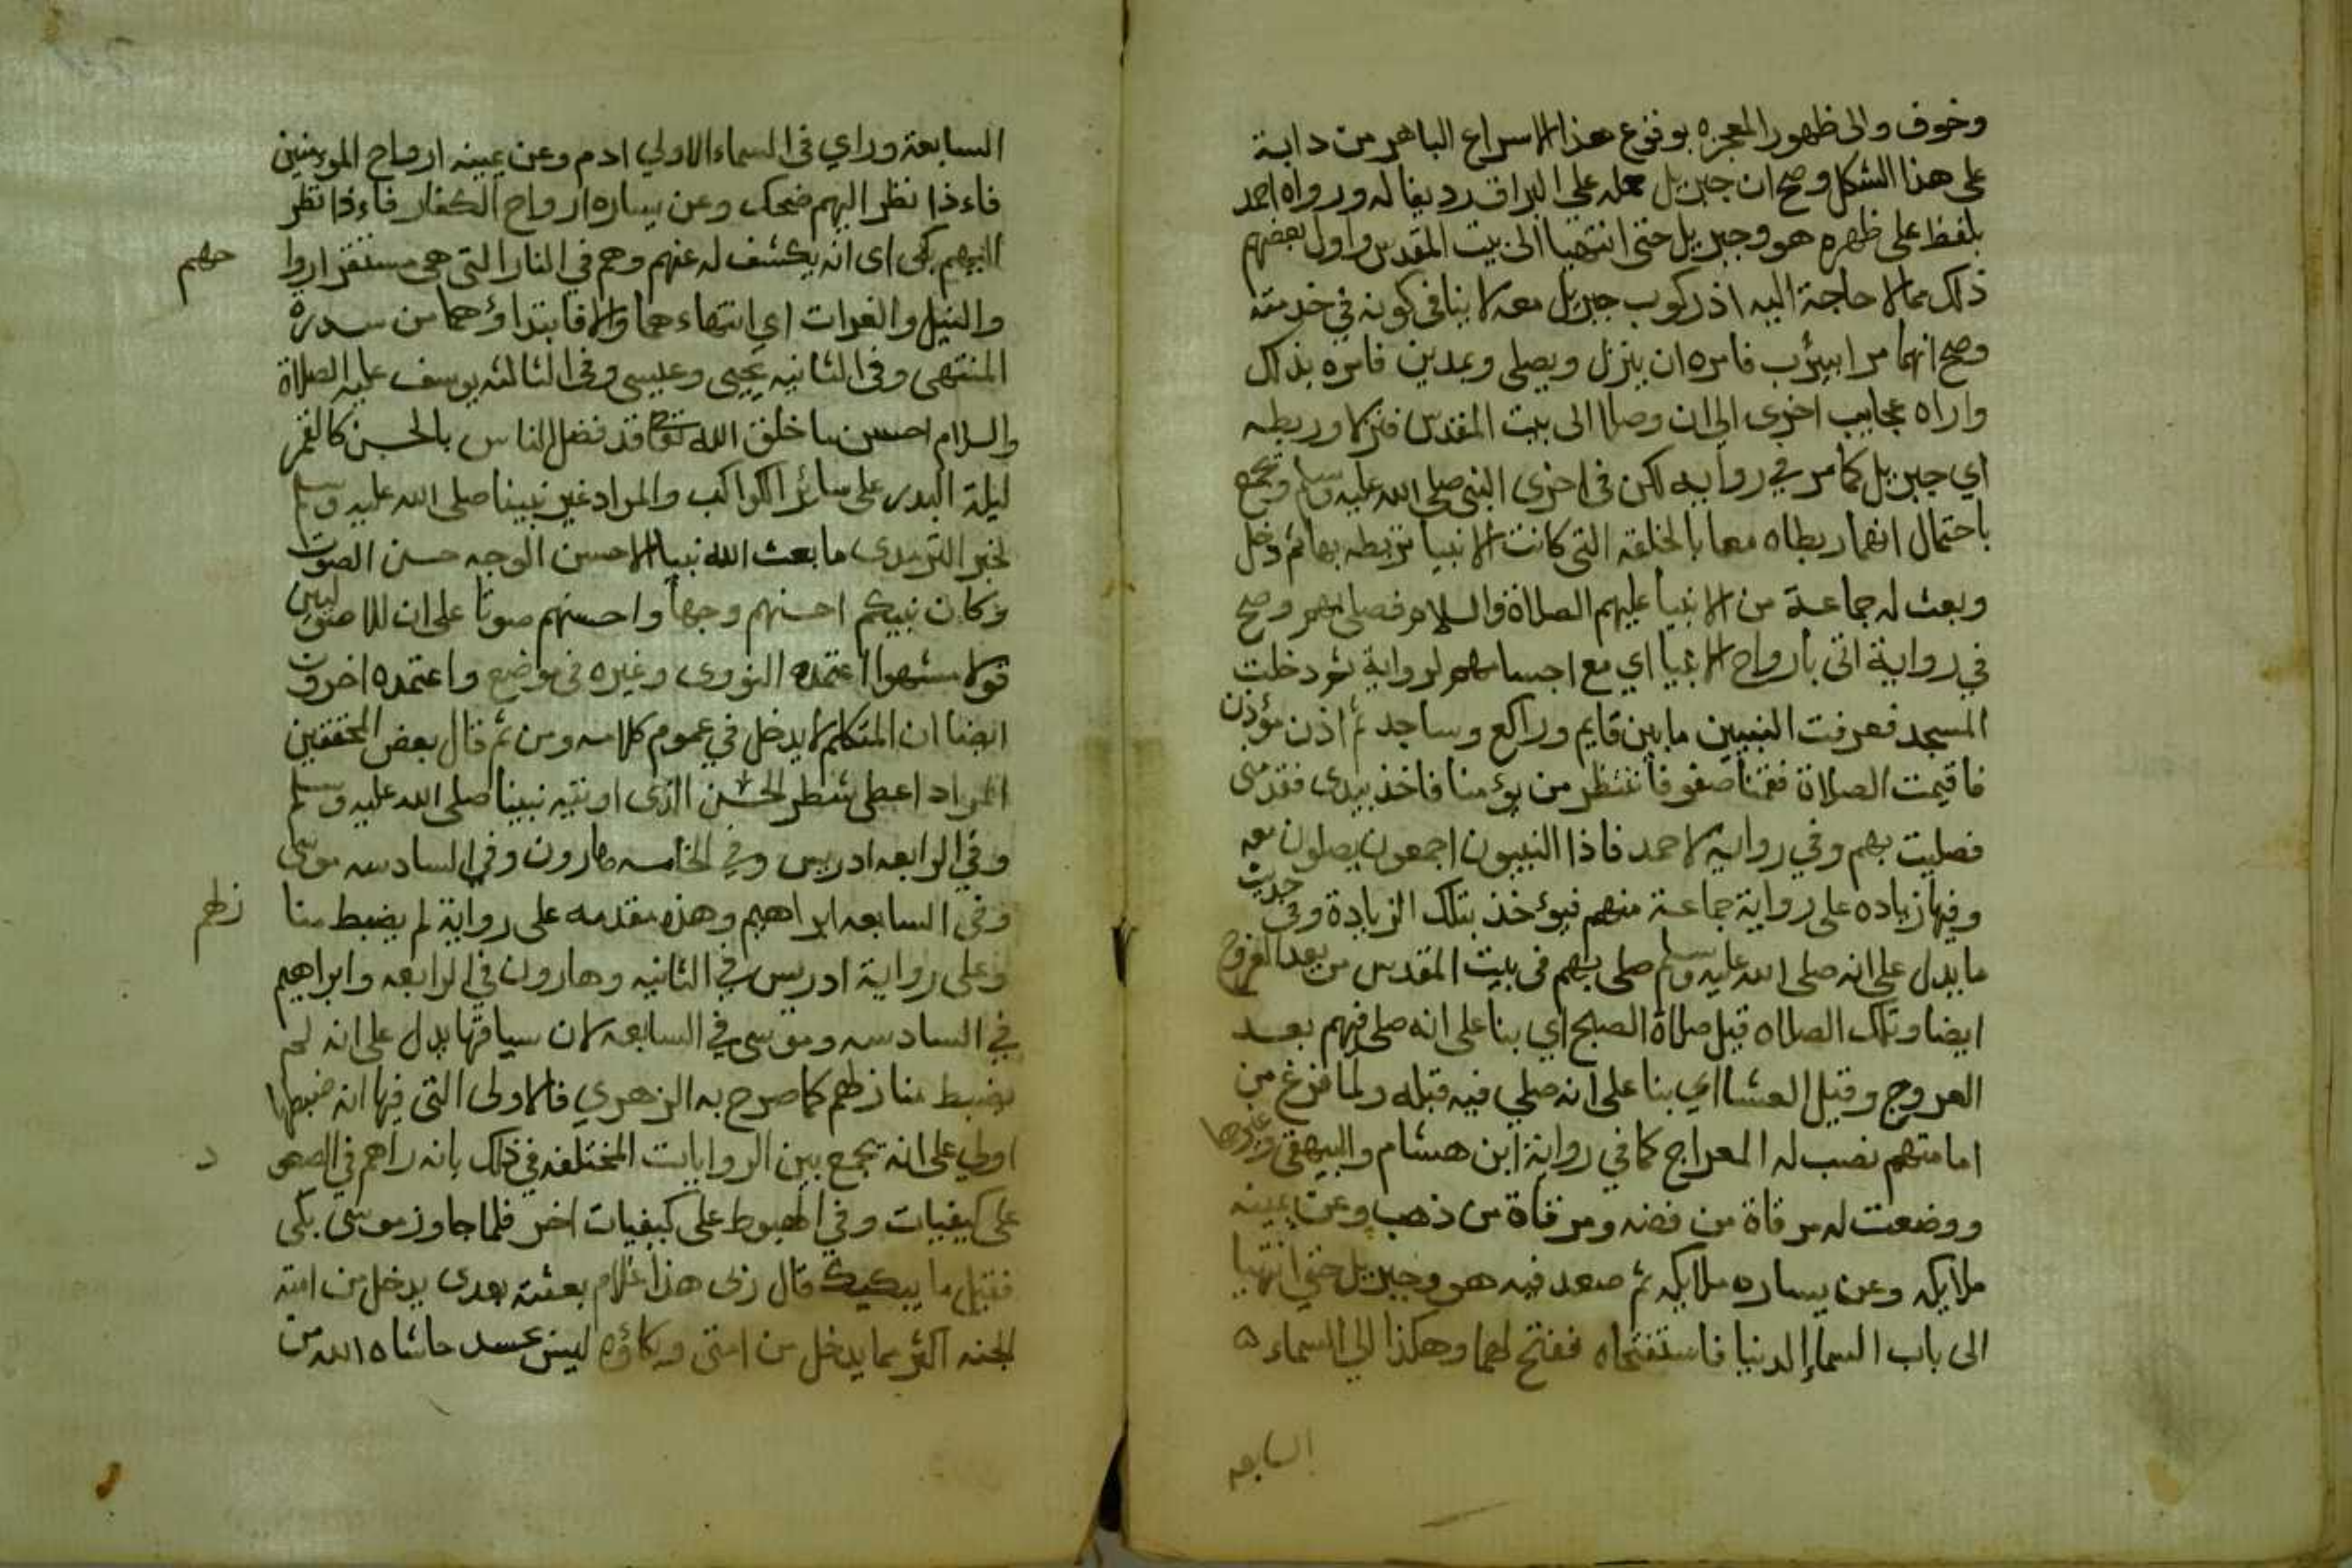 وخوف والى ظهور المعجزه بوقوع هذا الاسراع الباهر من دابة
على هذا الشكل وصح ان جبريل حمله على البراق رديفا له ورواه احمد
بلفظ على ظهره هو وجبريل حتى انتهيا الى بيت المقدس واول بعضهم
ذلك مما لا حاجة اليه اذ ركوب جبريل معه لا ينافي كونه في خدمته
وصح انهما مرا بيثرب فامره ان ينزل ويصلى وبمدين فامره بذلك
واراه عجايب اخرى الى ان وصلا الى بيت المقدس فنزلا وربطه
اي جبريل كما مر في رواية لكن في اخرى النبي صلى الله عليه وسلم ويجمع
باحتمال انهما ربطاه معا بالحلقة التي كانت الانبيا تربطه بها ثم دخل
وبعث له جماعة من الانبيا عليهم الصلاة والسلام فصلى بهم وصح
في رواية اتى بارواح الانبيا اي مع اجسامهم لرواية ثم دخلت
المسجد فعرفت النبيين ما بين قايم وراكع وساجد ثم اذن موذن
فاقيمت الصلاة فقمنا صفوفا ننتظر من يؤمنا فاخذ بيدى فقدمنى
فصليت بهم وفي رواية لاحمد فاذا النبيون اجمعون يصلون معه
وفيها زياده على رواية جماعة منهم فيؤخذ بتلك الزيادة وفي حديث
ما يدل على انه صلى الله عليه وسلم صلى بهم في بيت المقدس من بعد العروج
ايضا وتلك الصلاه قبل صلاة الصبح اي بنا على انه صلى فيهم بعد
العروج وقبل العشا اي بنا على انه صلي فيه قبله ولما فرغ من
امامتهم نصب له المعراج كما في رواية ابن هشام والبيهقي وغيرهما
ووضعت له مرقاة من فضه ومرقاة من ذهب وعن يمينه
ملايكه وعن يساره ملايكه ثم صعد فيه هو وجبريل حتى انتهيا
الى باب السماء الدنيا فاستفتحاه ففتح لهما وهكذا الى السماء
السابعه
السابعة وراي في السماء الاولي ادم وعن يمينه ارواح المومنين
فاءذا نظر اليهم ضحك وعن يساره ارواح الكفار فاءذا نظر
اليهم بكى اى انه يكشف له عنهم وهم في النار التى هي مستقر اروا
حهم
والنيل والفرات اي انتهاءهما والا فابتداؤهما من سدرة
المنتهى وفي الثانيه يحيى وعيسى وفي الثالثه يوسف عليه الصلاة
والسلام احسن ما خلق الله تعالى قد فضل الناس بالحسن كالقمر
ليلة البدر على سائر الكواكب والمراد غير نبينا صلى الله عليه وسلم
لخبر الترمذى ما بعث الله نبيا الا حسن الوجه حسن الصوت
وكان نبيكم احسنهم وجها واحسنهم صوتا على ان للاصوليين
قولا مشهوا اعتمده النووى وغيره في موضع واعتمده اخرون
ايضا ان المتكلم لا يدخل في عموم كلامه ومن ثم قال بعض المحققين
المراد اعطى شطر الحسن الذى اوتيه نبينا صلى الله عليه وسلم
وفي الرابعه ادريس وفي الخامسه هارون وفي السادسه موسى
وفي السابعه ابراهيم وهذه مقدمه على رواية لم يضبط منا
زلهم
وعلى رواية ادريس في الثانيه وهارون في الرابعه وابراهيم
في السادسه وموسى في السابعه لان سياقها يدل على انه لم
يضبط منازلهم كما صرح به الزهري فالاولى التي فيها انه ضبطها
اولي على انه يجمع بين الروايات المختلفه في ذلك بانه راهم في الصعو
د
على كيفيات وفي الهبوط على كيفيات اخر فلما جاوز موسى بكى
فقيل ما يبكيك قال رب هذا غلام بعثته بعدى يدخل من امته
الجنه اكثر مما يدخل من امتى وبكاؤه ليس حسد حاشاه الله من